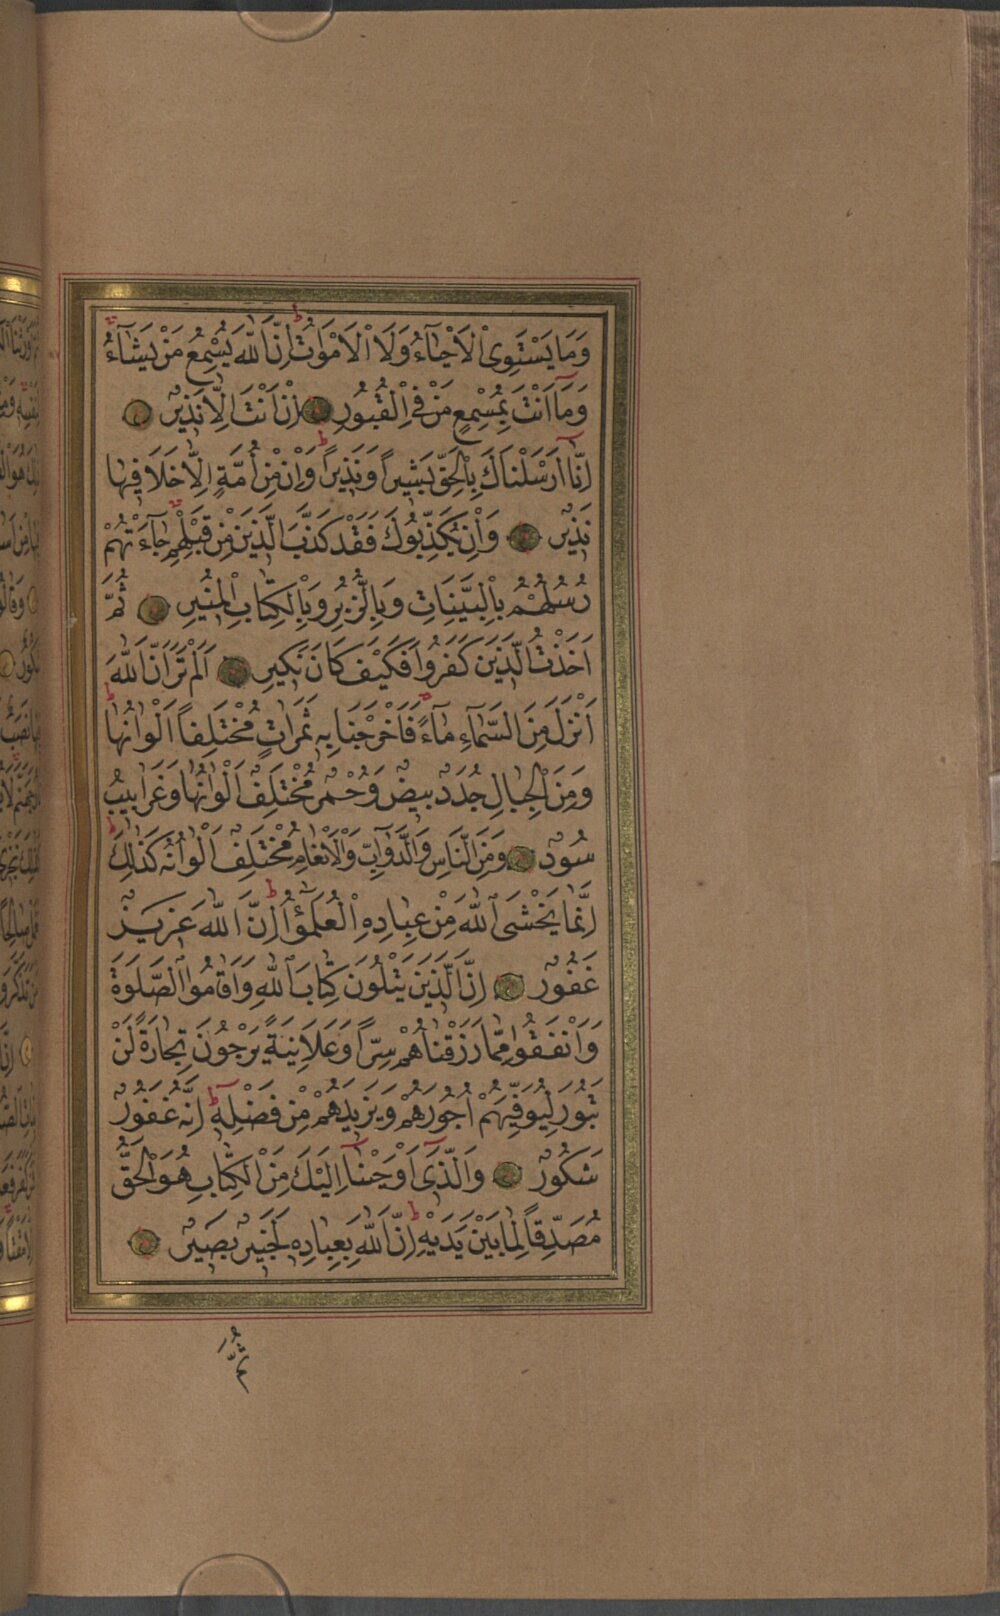 وَمَا يَسْتَوِى الْاَحْيَٓاءُ وَلَا الْاَمْوَاتُ اِنَّ اللّٰهَ يُسْمِعُ مَنْ يَشَٓاءُ
وَمَٓا اَنْتَ بِمُسْمِعٍ مَنْ فِى الْقُبُورِ اِنْ اَنْتَ اِلَّا نَذِيرٌ
اِنَّٓا اَرْسَلْنَاكَ بِالْحَقِّ بَشِيراً وَنَذِيراً وَاِنْ مِنْ اُمَّةٍ اِلَّا خَلَا فِيهَا
نَذِيرٌ وَاِنْ يُكَذِّبُوكَ فَقَدْ كَذَّبَ الَّذِينَ مِنْ قَبْلِهِمْ جَٓاءَتْهُمْ
رُسُلُهُمْ بِالْبَيِّنَاتِ وَبِالزُّبُرِ وَبِالْكِتَابِ الْمُنِيرِ ثُمَّ
اَخَذْتُ الَّذِينَ كَفَرُوا فَكَيْفَ كَانَ نَكِيرِ اَلَمْ تَرَ اَنَّ اللّٰهَ
اَنْزَلَ مِنَ السَّمَٓاءِ مَٓاءً فَاَخْرَجْنَا بِهِ ثَمَرَاتٍ مُخْتَلِفاً اَلْوَانُهَا
وَمِنَ الْجِبَالِ جُدَدٌ بِيضٌ وَحُمْرٌ مُخْتَلِفٌ اَلْوَانُهَا وَغَرَابِيبُ
سُودٌ وَمِنَ النَّاسِ وَالدَّوَٓابِّ وَالْاَنْعَامِ مُخْتَلِفٌ اَلْوَانُهُ كَذٰلِكَ
اِنَّمَا يَخْشَى اللّٰهَ مِنْ عِبَادِهِ الْعُلَمٰٓؤُا اِنَّ اللّٰهَ عَزِيزٌ
غَفُورٌ اِنَّ الَّذِينَ يَتْلُونَ كِتَابَ اللّٰهِ وَاَقَامُوا الصَّلٰوةَ
وَاَنْفَقُوا مِمَّا رَزَقْنَاهُمْ سِرّاً وَعَلَانِيَةً يَرْجُونَ تِجَارَةً لَنْ
تَبُورَ لِيُوَفِّيَهُمْ اُجُورَهُمْ وَيَزِيدَهُمْ مِنْ فَضْلِهِ اِنَّهُ غَفُورٌ
شَكُورٌ وَالَّذِٓى اَوْحَيْنَٓا اِلَيْكَ مِنَ الْكِتَابِ هُوَ الْحَقُّ
مُصَدِّقاً لِمَا بَيْنَ يَدَيْهِ اِنَّ اللّٰهَ بِعِبَادِهِ لَخَبِيرٌ بَصِيرٌ
ثُمَّ